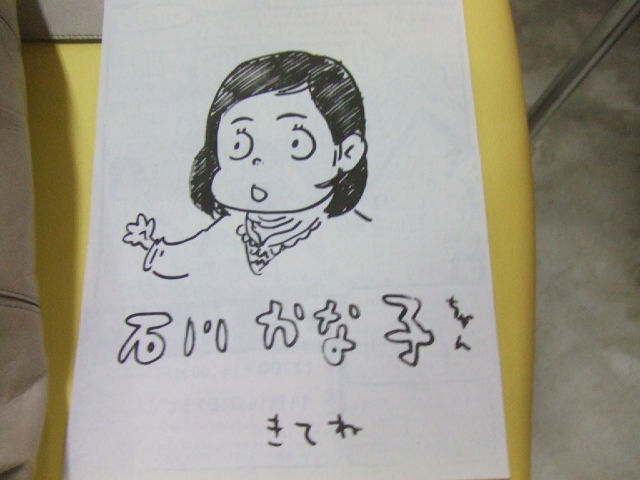 石川かな子ちゃん
きてね